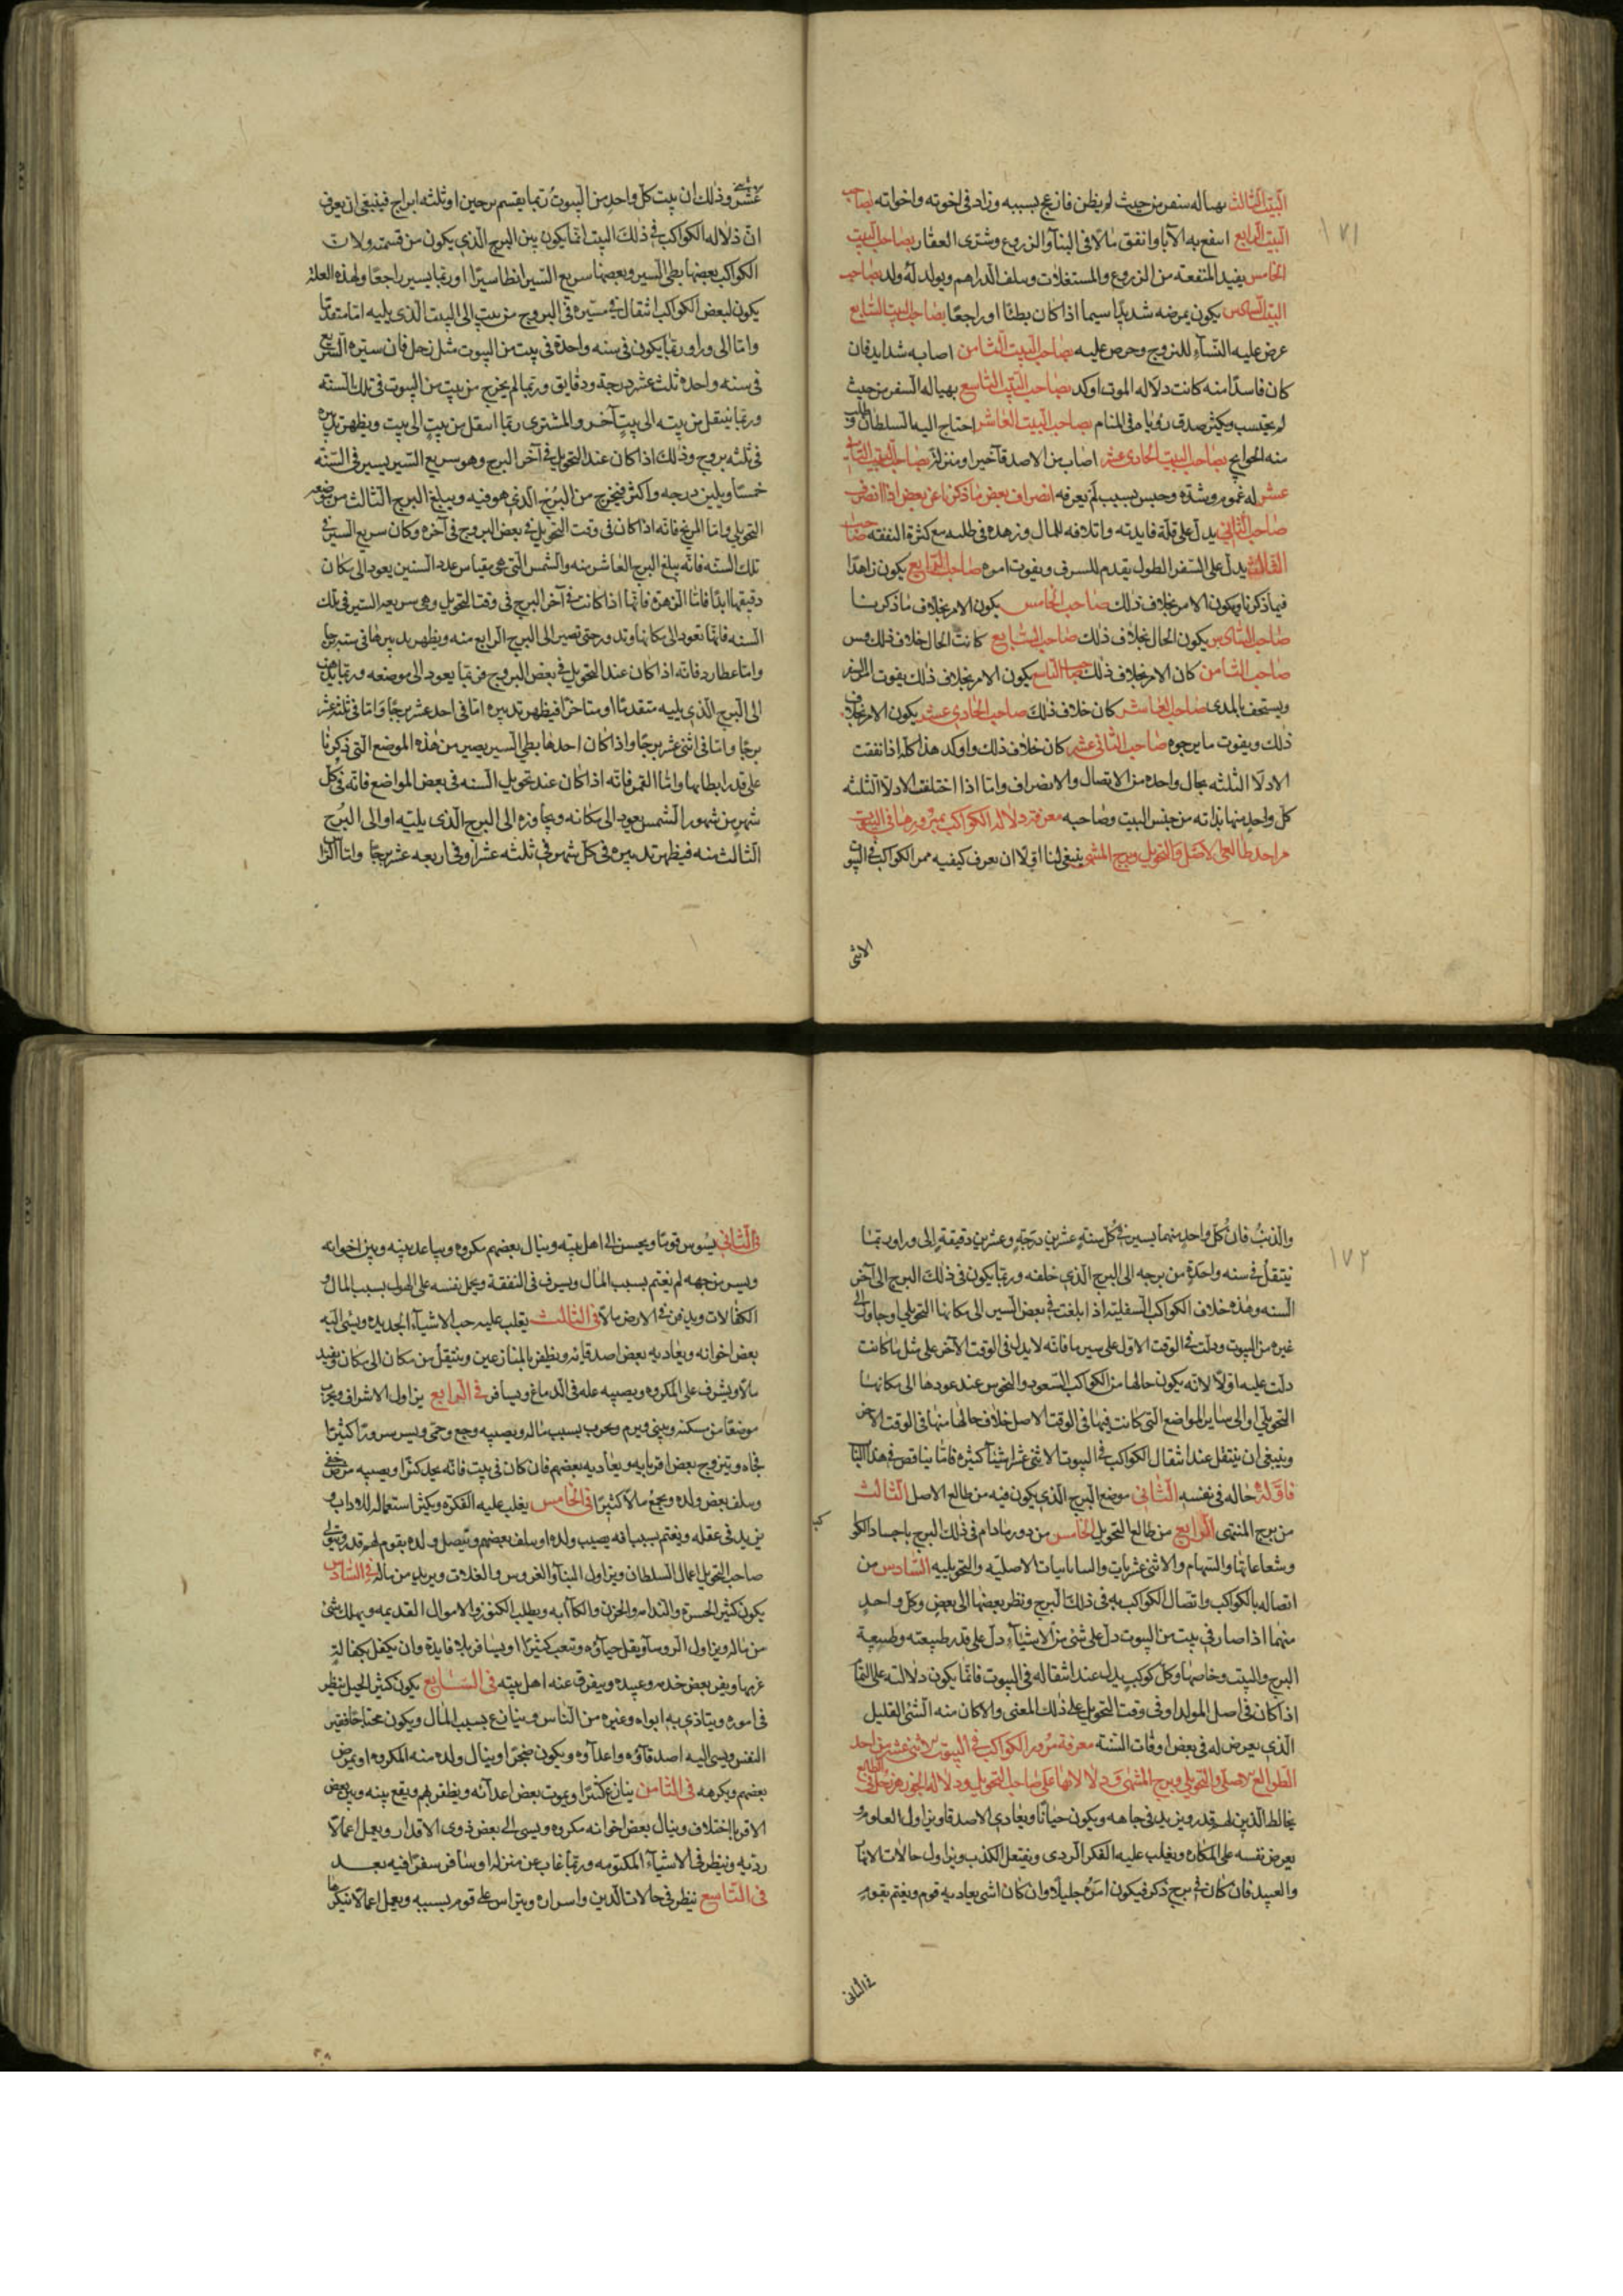 ١٧١
البيت الثالث يهيا له سفر من حيث لم يظن فانزعج بسببه وزاد في اخوته واخواته بصاحب
البيت الرابع انتفع به الآبا وانفق مالا في البنآ والزروع وشترى العقار بصاحب البيت
الخامس يفيد المنفعته من الزروع والمستغلات وسلف الدراهم ويولد له ولد بصاحب
البيت السادس يكون بمرضه شديدًا سيما اذا كان بطئا او راجعًا بصاحب البيت السابع
عرض عليه النسآء للتزوج وحرص عليه بصاحب البيت الثامن اصابه شدايد فان
كان فاسدًا منه كانت دلاله الموت اوكد بصاحب البيت التاسع يهيا له السفر من حيث
لم يحتسب ويكثر صدق رؤياه في المنام بصاحب البيت العاشر احتاج اليه السلطان وطلب
منه الحوايج بصاحب البيت الحادى عشر اصاب من الاصدقآ خيرا ومنزلة بصاحب البيت الثاني
عشر له غموم وشدّه وحبس بسبب لم يعرفه انصراف بعض ما ذكرنا عن بعض اذا انصرف
صاحب الثاني يدل على قلّة فايدته واتلافه للمال وزهده في طلبه مع كثرة النفقه صاحب
الثالث يدل على السفر الطول يقدم للسرف ويفوت امره صاحب الرابع يكون زاهدًا
فيما ذكرنا ويكون الامر بخلاف ذلك صاحب الخامس يكون الامر بخلاف ما ذكرنا
صاحب السادس يكون الحال بخلاف ذلك صاحب السابع كانت الحال خلاف ذلك
صاحب الثامن كان الامر بخلاف ذلك صاحب التاسع يكون الامر بخلاف ذلك يفوت السفر
ويستخف بالمدى صاحب العاشر كان خلاف ذلك صاحب الحادى عشر يكون الامر بخلاف
ذلك ويفوت ما يرجوه صاحب الثانى عشر كان خلاف ذلك واوكد هذا كله اذا اتفقت
الادلآ الثلثه بحال واحده من الاتصال والانصراف وامّا اذا اختلفت الادلآ الثلثه
كل واحد منها بذاته من جنس البيت وصاحبه معرفة دلاله الكواكب بمرورها في البيوت
من احد طالعى الاصل والتحويل وبرج المنتهى ينبغى لنا اوّلا ان نعرف كيفيه ممر الكواكب في البيوت
الاثنى
الاثنى
عشر وذلك ان بيت كل واحد من البيوت ربّما يقسم برجين او ثلثه ابراج فينبغى ان يعرف
انّ دلاله الكواكب في ذلك البيت انّما يكون بين البرج الذي يكون من قسمته ولان
الكواكب بعضها بطى السير وبعضها سريع السير ابطا سيرًا او ربّما يسير راجعًا ولهذه العله
يكون لبعض الكواكب انتقال في مسيره في البروج من بيت الى البيت الذي يليه امّا متقدما
وامّا الى ورا وربّما يكون في سنه واحدة في بيت من البيوت مثل زحل فان سيره السريع
فى سنه واحده ثلث عشر درجة ودقايق وربّما لم يخرج من بيت من البيوت فى تلك السنه
وربّما ينتقل من بيته الى بيت آخر والمشترى ربّما انتقل من بيت الى بيت ويظهر تدبيره
فى ثلثه بروج وذلك اذا كان عند التحويل في آخر البرج وهو سريع السير يسير فى السّنه
خمسًا وثلثين درجه واكثر فيخرج من البرج الذي هو فيه ويبلغ البرج الثالث من موضعه
التحويلى وامّا المريخ فانّه اذا كان فى وقت التحويل في بعض البروج فى آخره وكان سريع السير في
تلك السنه فانّه يبلغ البرج العاشر منه والشمس التى هى مقياس عدد السنين يعود الى مكان
دقيقتها ابدًا فامّا الزهره فانّها اذا كانت في آخر البرج فى وقت التحويل وهى سريعه السير فى تلك
السنه فانّها تعود الى مكانها وتدور حتى تصير الى البرج الرابع منه ويظهر تدبيرها فى
وامّا عطارد فانّه اذا كان عند التحويل في بعض البروج فربّما يعود الى موضعه وربّما
الى البرج الذي يليه متقدمًا او متاخرًا فيظهر تدبيره امّا فى احد عشر برجًا وامّا فى ثلثه عشر
برجًا وامّا فى اثنى عشر برجًا واذا كان احدها بطى السير يصير من هذه الموضع التى ذكرنا
على قدر ابطايها وامّا القمر فانّه اذا كان عند تحويل السنه فى بعض المواضع فانّه فى كل
شهر من شهور الشمس يعود الى مكانه ويجاوزه الى البرج الذي يليه او الى البرج
الثالث منه فيظهر تدبيره فى كل شهر فى ثلثه عشر او في اربعه عشر برجًا وامّا الراس
١٧٢
والذنب فان كل واحد منهما يسير في كل سنة عشرين درجة وعشرين دقيقة الى ورا وربّما
ينتقل في سنه واحدة من برجه الى البرج الذي خلفه وربّما يكون فى ذلك البرج الى آخر
السنه وهذه خلاف الكواكب السفليه اذا بلغت في بعض السير الى مكانها التحويلى او جاوز الى
غيره من البيوت ودلّت في الوقت الاوّل على سير ما فانّه لا يدل فى الوقت الآخر على مثل ما كانت
دلّت عليه اوّلا لانّه يكون حالها من الكواكب السعود والنحوس عند عودها الى مكانها
التحويلى او الى ساير المواضع التى كانت فيها فى الوقت الاصل خلاف حالها منها فى الوقت الآخر
وينبغى ان ينقل عند انتقال الكواكب في البيوت الاثنى عشر اشيآ كثيرة فامّا يناقض في هذا الباب
فاوّله حاله فى نفسه الثانى موضع البرج الذي يكون فيه من طالع الاصل الثالث
من برج المنتهى الرابع من طالع التحويل الخامس من دوره ما دام فى ذلك البرج باجساد الكوا
كب
وشعاعاتها والسهام والاثنى عشريات والسابايات الاصليّه والتحويليه السادس من
اتصاله بالكواكب واتصال الكواكب به في ذلك البرج ونظر بعضها الى بعض وكل واحد
منهما اذا صار في بيت من البيوت دل على شى من الاشيآء دل على قدر طبيعته وطبيعة
البرج والبيت وخاصتها وكل كوكب يدل عند انتقاله في البيوت فانّما يكون دلالته على التمآ
اذا كان في اصل المولد او فى وقت التحويل على ذلك المعنى والا كان منه الشئ القليل
الذي يعرض له فى بعض اوقات السّنة معرفة مرور الكواكب في البيوت الاثنى عشر من احد
الطوالع الاصلى والتحويلى وبرج المنتهى ودلالاتها على صاحب التحويل ودلاله الجوز هر زحل في الطالع
يخالط الذين لهم قدر ويزيد في جاهه ويكون حياتًا ويعادي الاصدقا ويزاول العلوم
يعرض نفسه على المكاره ويغلب عليه الفكر الردى ويفتعل الكذب ويزاول حالات الانما
والعبيد فان كان في برج ذكر فيكون امره جليلًا وان كان انثى يعاديه قوم ويغتم بقوم
في الثانى
في الثانى يسوس قومًا ويحسن الى اهل بيته وينال بعضهم مكروه ويباعد بينه وبين اخوانه
ويسر من جهه لم يغتم بسبب المال ويسرف فى النفقة ويحمل نفسه على الهول بسبب المال و
الكفالات ويدفن في الارض مالا في الثالث يغلب عليه حب الاشيآء الجديده ويسئ اليه
بعض اخوانه ويعاديه بعض اصدقايه ويظفر بالمنازعين وينتقل من مكان الى مكان ويفيد
مالا ويشرف على المكروه ويصيبه عله في الدماغ ويسافر في الرابع يزاول الاشراف ويخرب
موضعًا من مسكنه ويبنى ويرم ويحرب بسبب ماله ويصيبه وجع وحمى ويسر سرورًا كثيرًا
فجاه ويتزوج بعض اقربايه ويعاديه بعضهم فان كان فى بيت فانّه يجد كنزًا ويصيبه مرض خفى
وسلف بعض ولده ويجمع مالا كثيرًا فى الخامس يغلب عليه الفكرة ويكثر استعماله للاداب و
يزيد فى عقله ويغتم بسبب افه يصيب ولده او سلف بعضهم ويتصل ولده بقوم لهم قدر ويتولى
صاحب التحويل اعمال السلطان ويزاول البنآ والغروس والغلات ويريد من ماله في السادس
يكون كثير الحسرة والندامه والحزن والكآبه ويطلب الكنوز والاموال القديمه ويهلك شئ
من ماله ويزاول الروسآ ويقل حيآؤه وتعب كثيرًا او يسافر بلا فايدة وان يكفل بكفالة
غرمها ويفر بعض خدمه وعبيده ويفرق عنه اهل بيته في السابع يكون كثير الحيل ينظر
فى اموره ويتاذى به ابواه وغيره من الناس وينازع بسبب المال ويكون محتاجًا فقير
النفس ويسى اليه اصدقاؤه واعدآؤه ويكون ضجرًا وينال ولده منه المكروه او يمرض
بعضهم ويكرهه فى الثامن ينازع كثيرًا ويموت بعض اعدآئه ويظفر بهم ويقع بينه وبين بعض
الاقربا اختلاف وينال بعض اخوانه مكروه ويسى الى بعض ذوى الاقدار ويعمل اعمالا
رديه وينظر فى الاشيآء المكتومه وربّما غاب عن منزله او سافر سفرًا فيه بعد
فى التاسع ينظر فى حالات الدين واسراره ويتراس على قوم بسببه ويعمل اعمالا